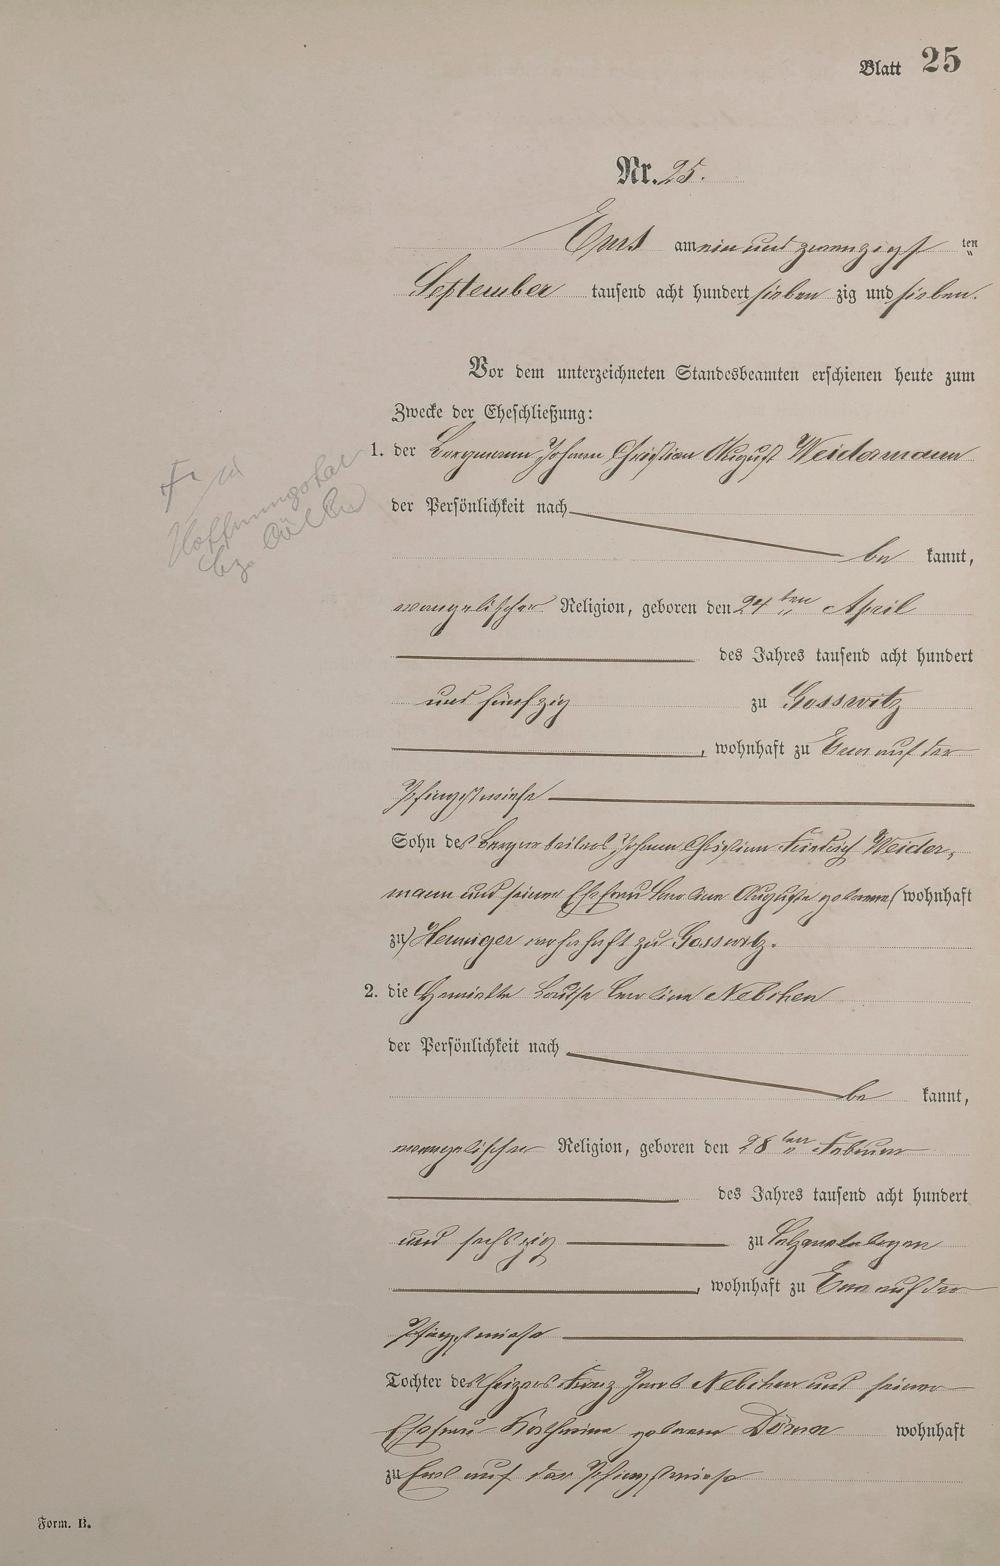 Blatt 25
Nr. 25.
Ems am ein und zwanzigsten
September tausend acht hundert sieben zig und sieben.
Vor dem unterzeichneten Standesbeamten erschienen heute zum
Zwecke der Eheschließung:
1. der Bergmann Johann Christian August Weidermann
der Persönlichkeit nach
be kannt,
evangelischer Religion, geboren den 24ten April
des Jahres tausend acht hundert
und fünfzig zu Gosswitz
, wohnhaft zu Ems auf der
Pfingstwiese
Sohn des Bergarbeiters Johann Christian Friedrich Weider-
mann und seiner Ehefrau Karoline Auguste geborene (wohnhaft
zu) Henniger wohnhaft zu Gosswitz.
2. die Henriette Louise Karoline Nebchen
der Persönlichkeit nach
be kannt,
evangelischer Religion, geboren den 28ten Februar
des Jahres tausend acht hundert
und sechszig zu
, wohnhaft zu Ems auf der
Pfingstwiese
Tochter des Heizers Franz Jacob Nebchen und seiner
Ehefrau Katharina geborene Dörner wohnhaft
zu Ems auf der Pfingstwiese
Form. B.